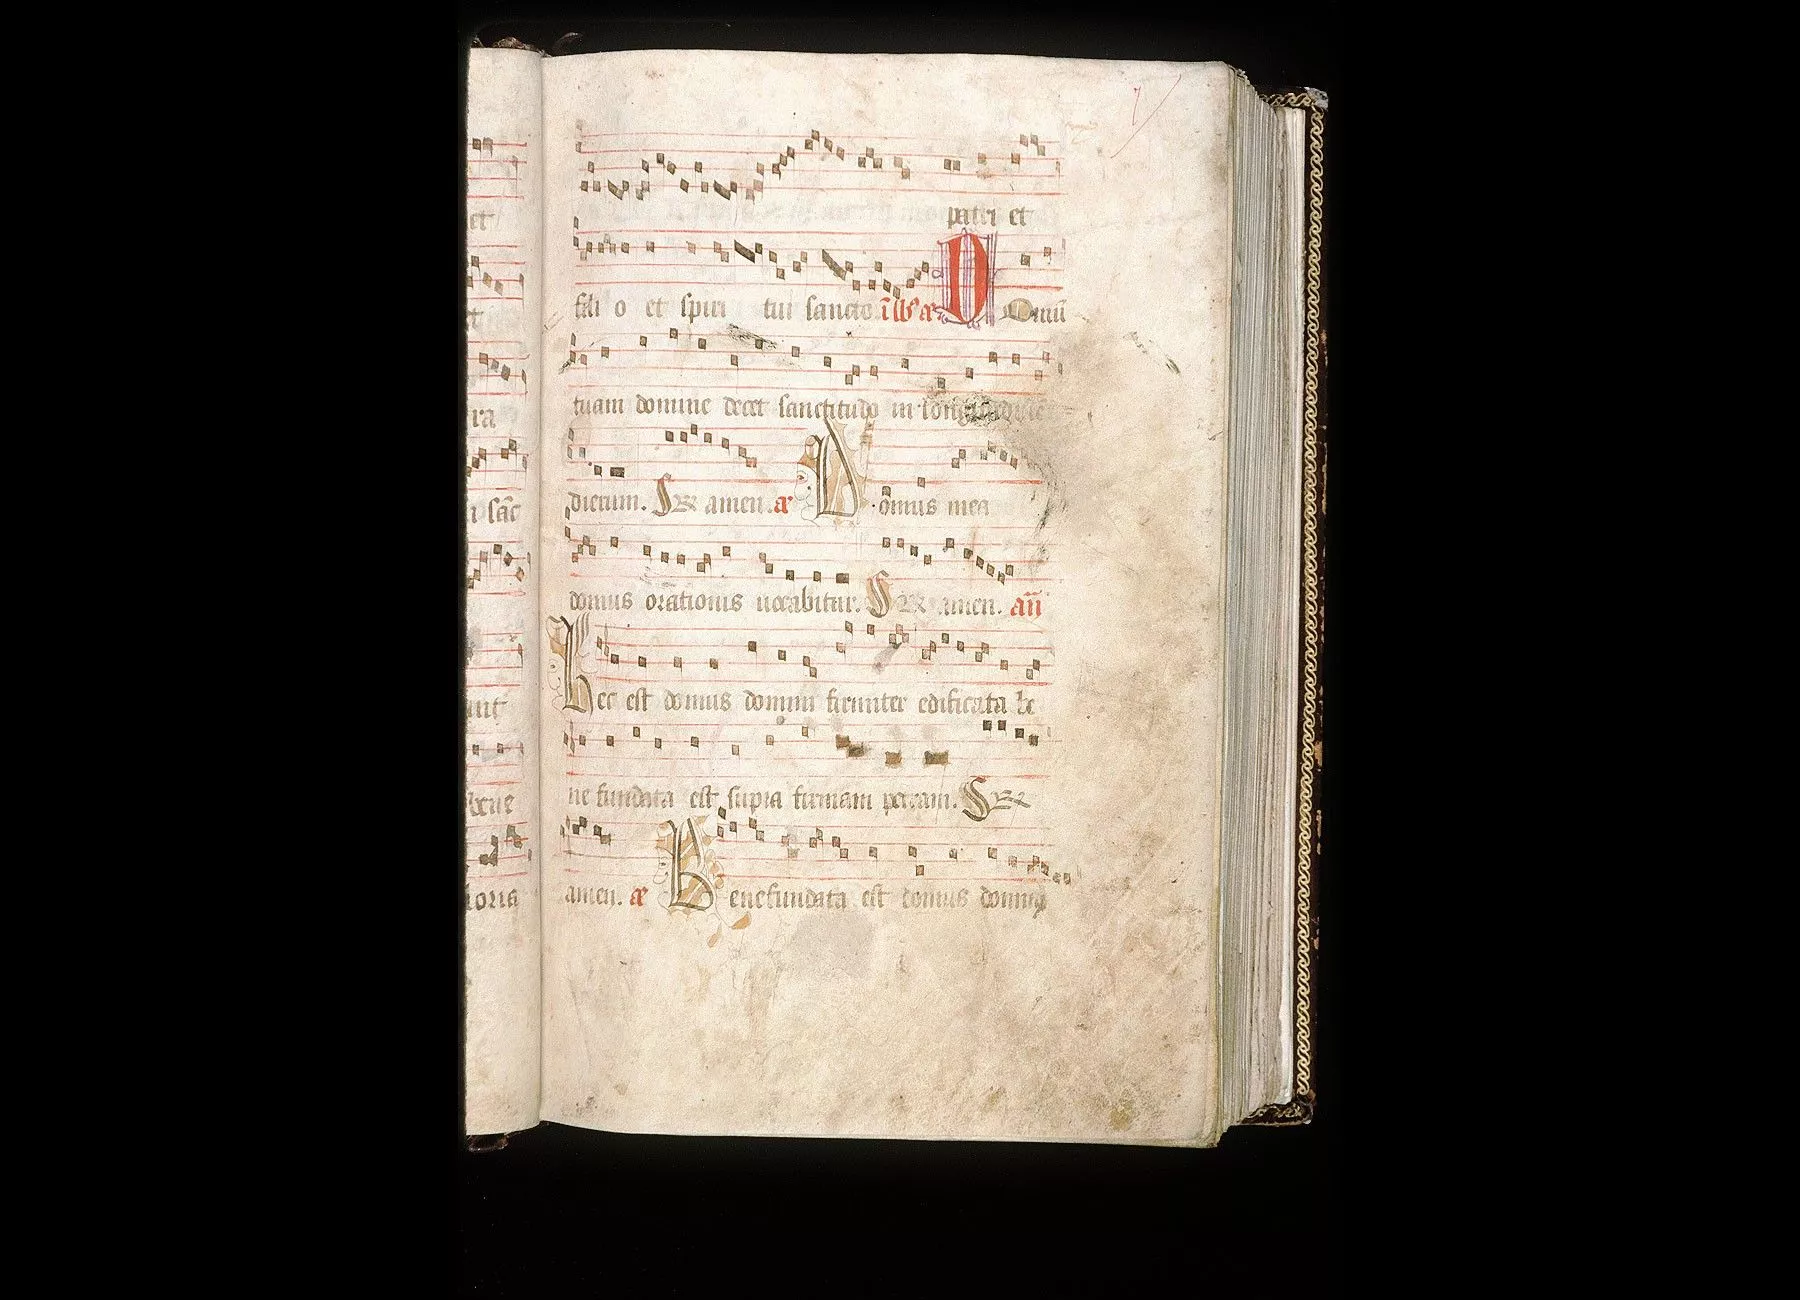 et
patri et
fili o et spiri tui sancto ĩ lĩb æ D Omũ
tuam domine decet sanctitudo in longitudinẽ
dierum. amen. æ Domus mea
domus orationis uocabitur. amen. añ
hec est domus domini firmiter edificata be
ne fundata est supra firmam petram.
amen. æ Bene fundata est domus domini
ra
i sãc
uit
bene
loria